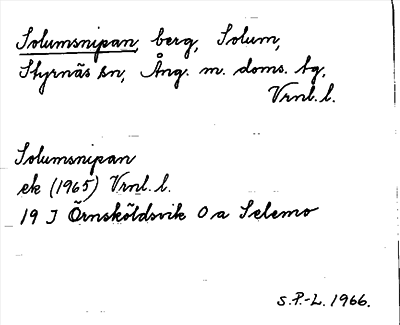 Solumsnipan, berg, Solum,
Styrnäs sn, Ång. m. doms. tg,
Vrnl. l.
Solumsnipan
ek (1965) Vrnl. l.
19 J Örnsköldsvik O a Selemo
S.P.-L. 1966.